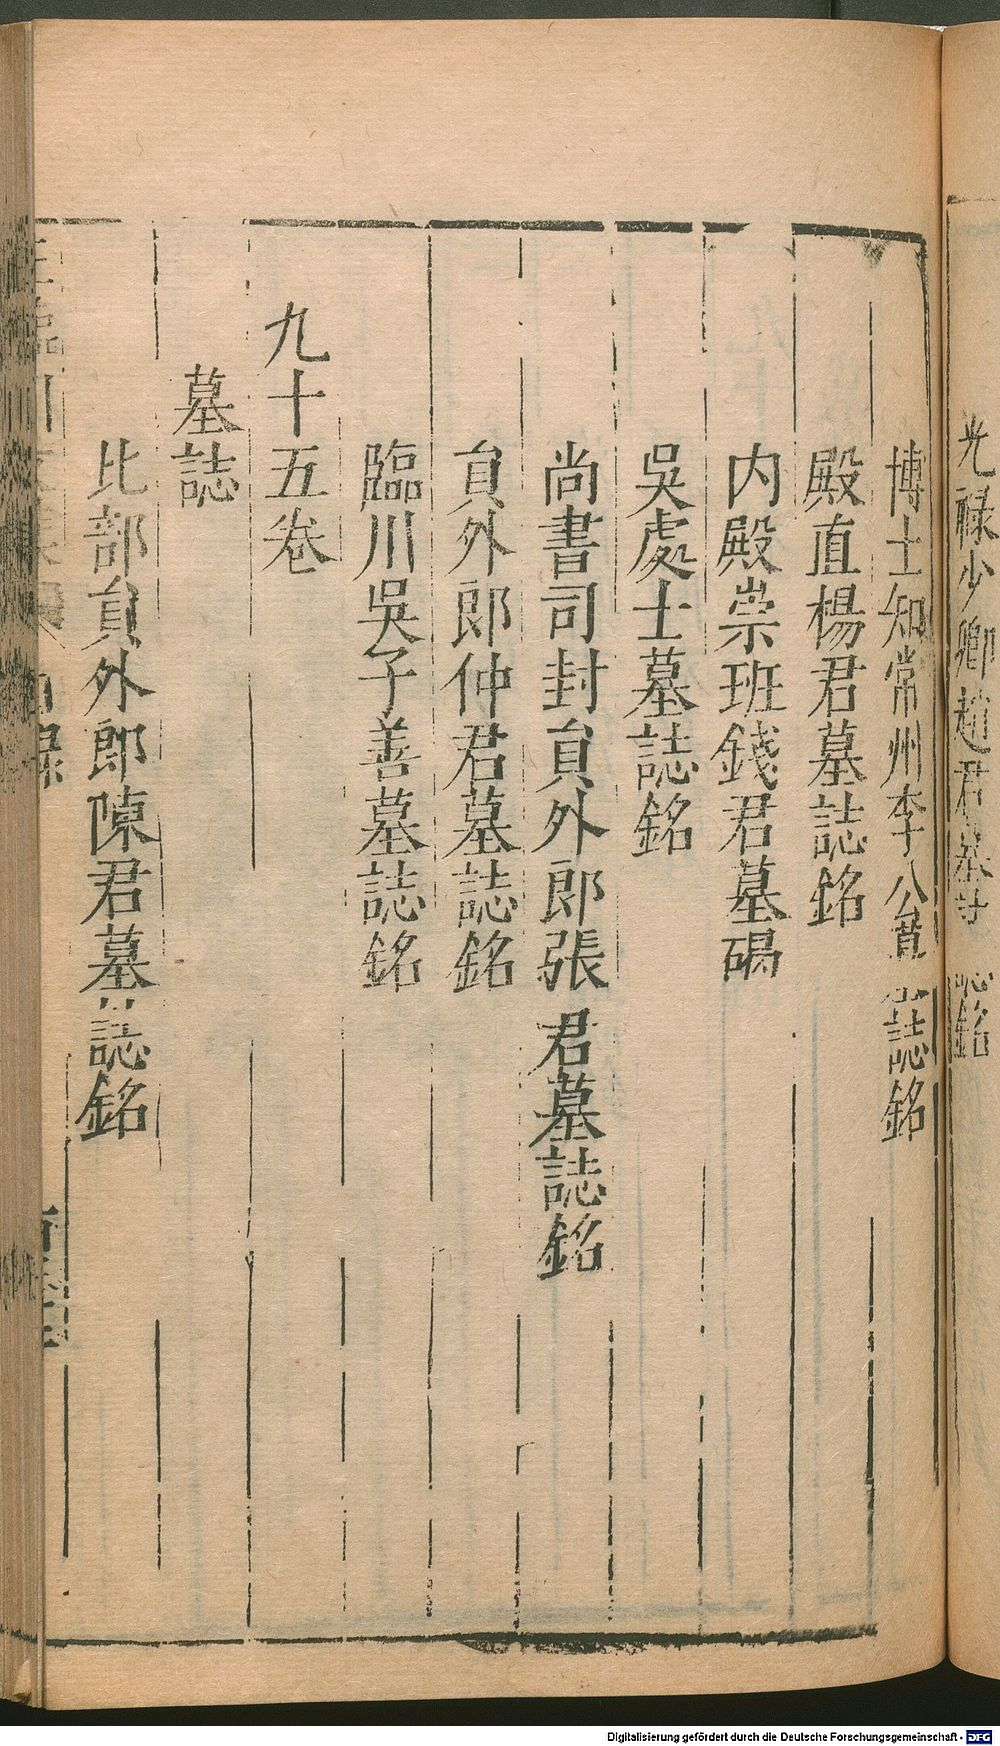 光祿少卿趙君墓 銘
博士知常州李公 誌銘
殿直楊君墓誌銘
内殿崇班錢君墓碣
吳處士墓誌銘
尚書司封貟外郎張君墓誌銘
貟外郎仲君墓誌銘
臨川吳子善墓誌銘
九十五卷
墓誌
比部貟外郎陳君墓誌銘
Digitalisierung gefördert durch die Deutsche Forschungsgemeinschaft - DFG